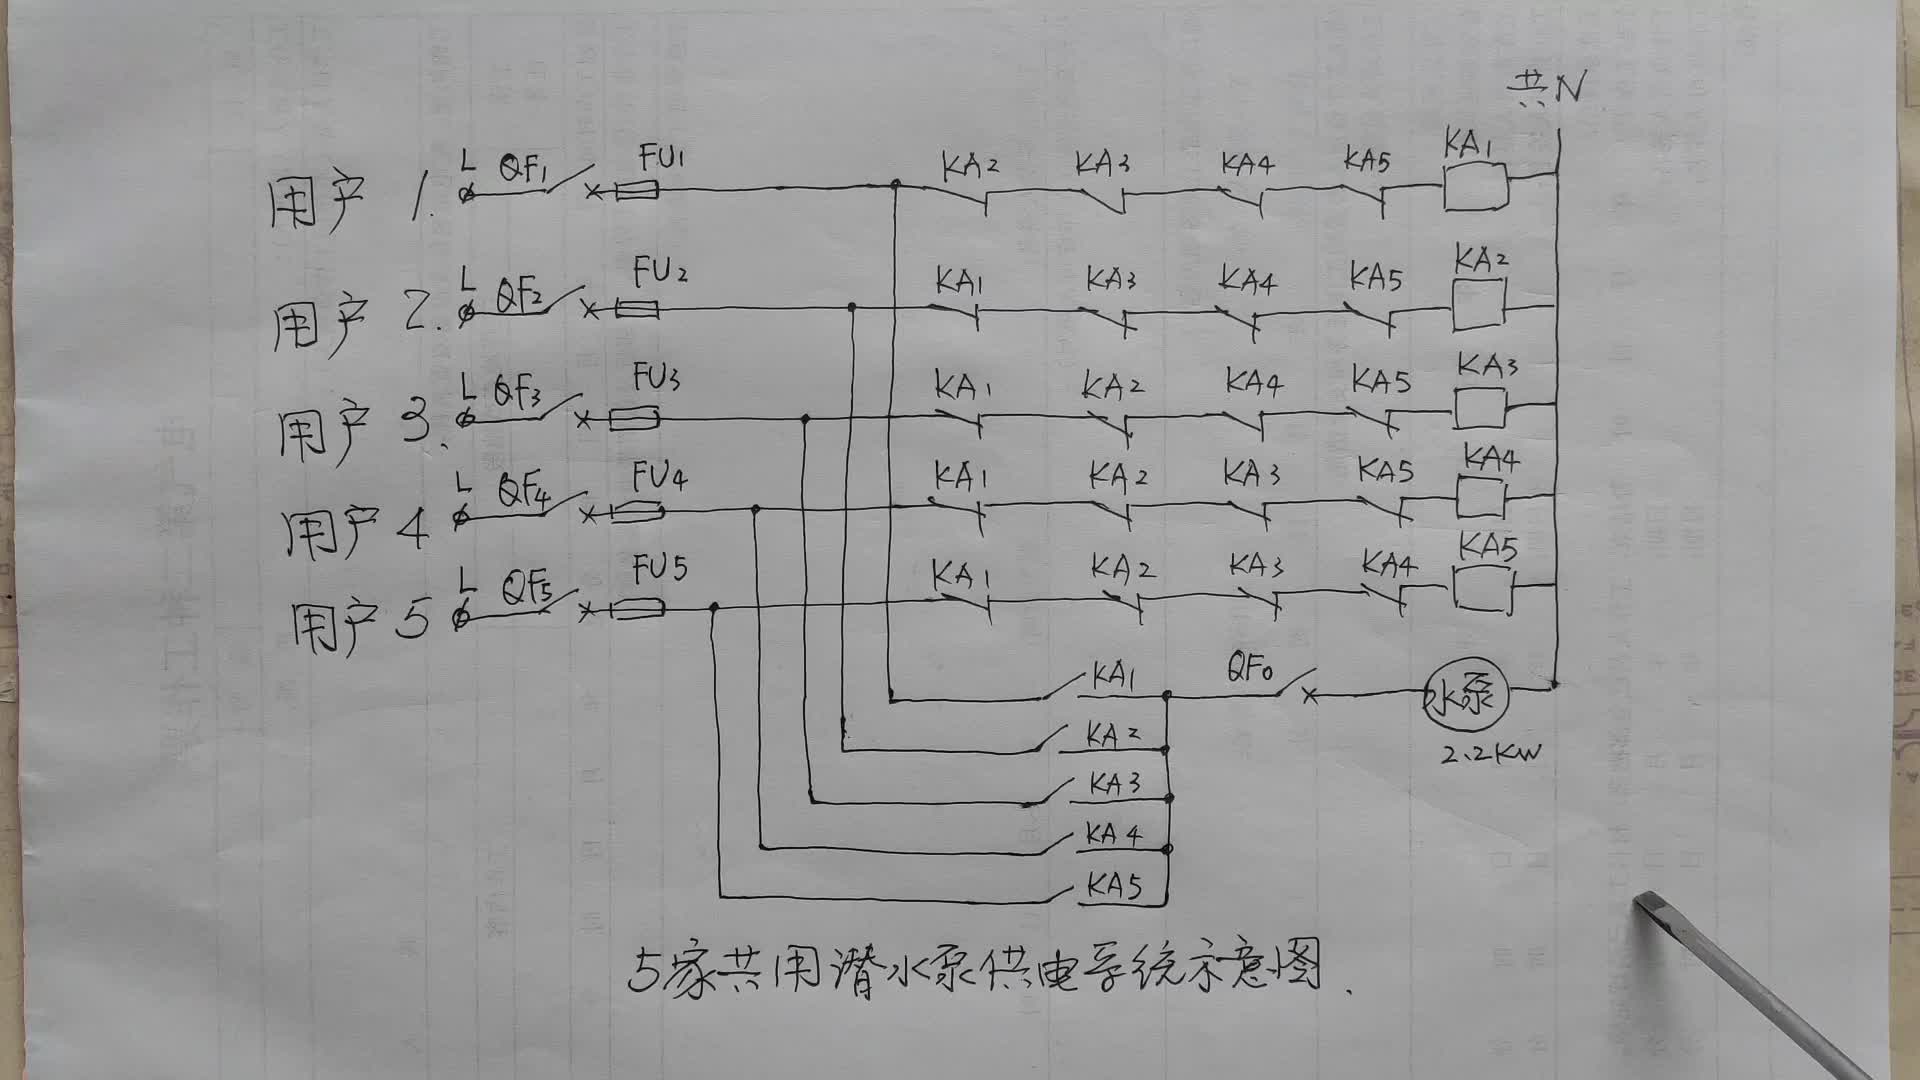 共N
用户 1. L QF1 FU1 KA2 KA3 KA4 KA5 KA1
用户 2. L QF2 FU2 KA1 KA3 KA4 KA5 KA2
用户 3. L QF3 FU3 KA1 KA2 KA4 KA5 KA3
用户 4 L QF4 FU4 KA1 KA2 KA3 KA5 KA4
用户 5 L QF5 FU5 KA1 KA2 KA3 KA4 KA5
KA1 QF0 水泵
KA2 2.2KW
KA3
KA4
KA5
5家共用潜水泵供电系统示意图.